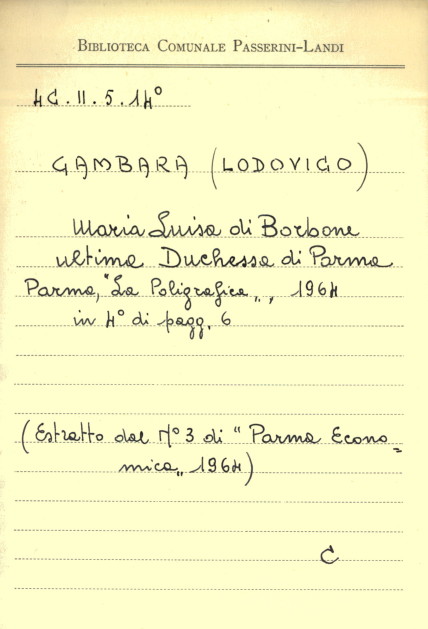 BIBLIOTECA COMUNALE PASSERINI-LANDI
4C.II.5.14°
GAMBARA (LODOVICO)
Maria Luisa di Borbone
ultima Duchessa di Parma
Parma, "La Poligrafica„, 1964
in 4° di pagg. 6
(Estratto dal N° 3 di "Parma Econo=
mica„ 1964)
C